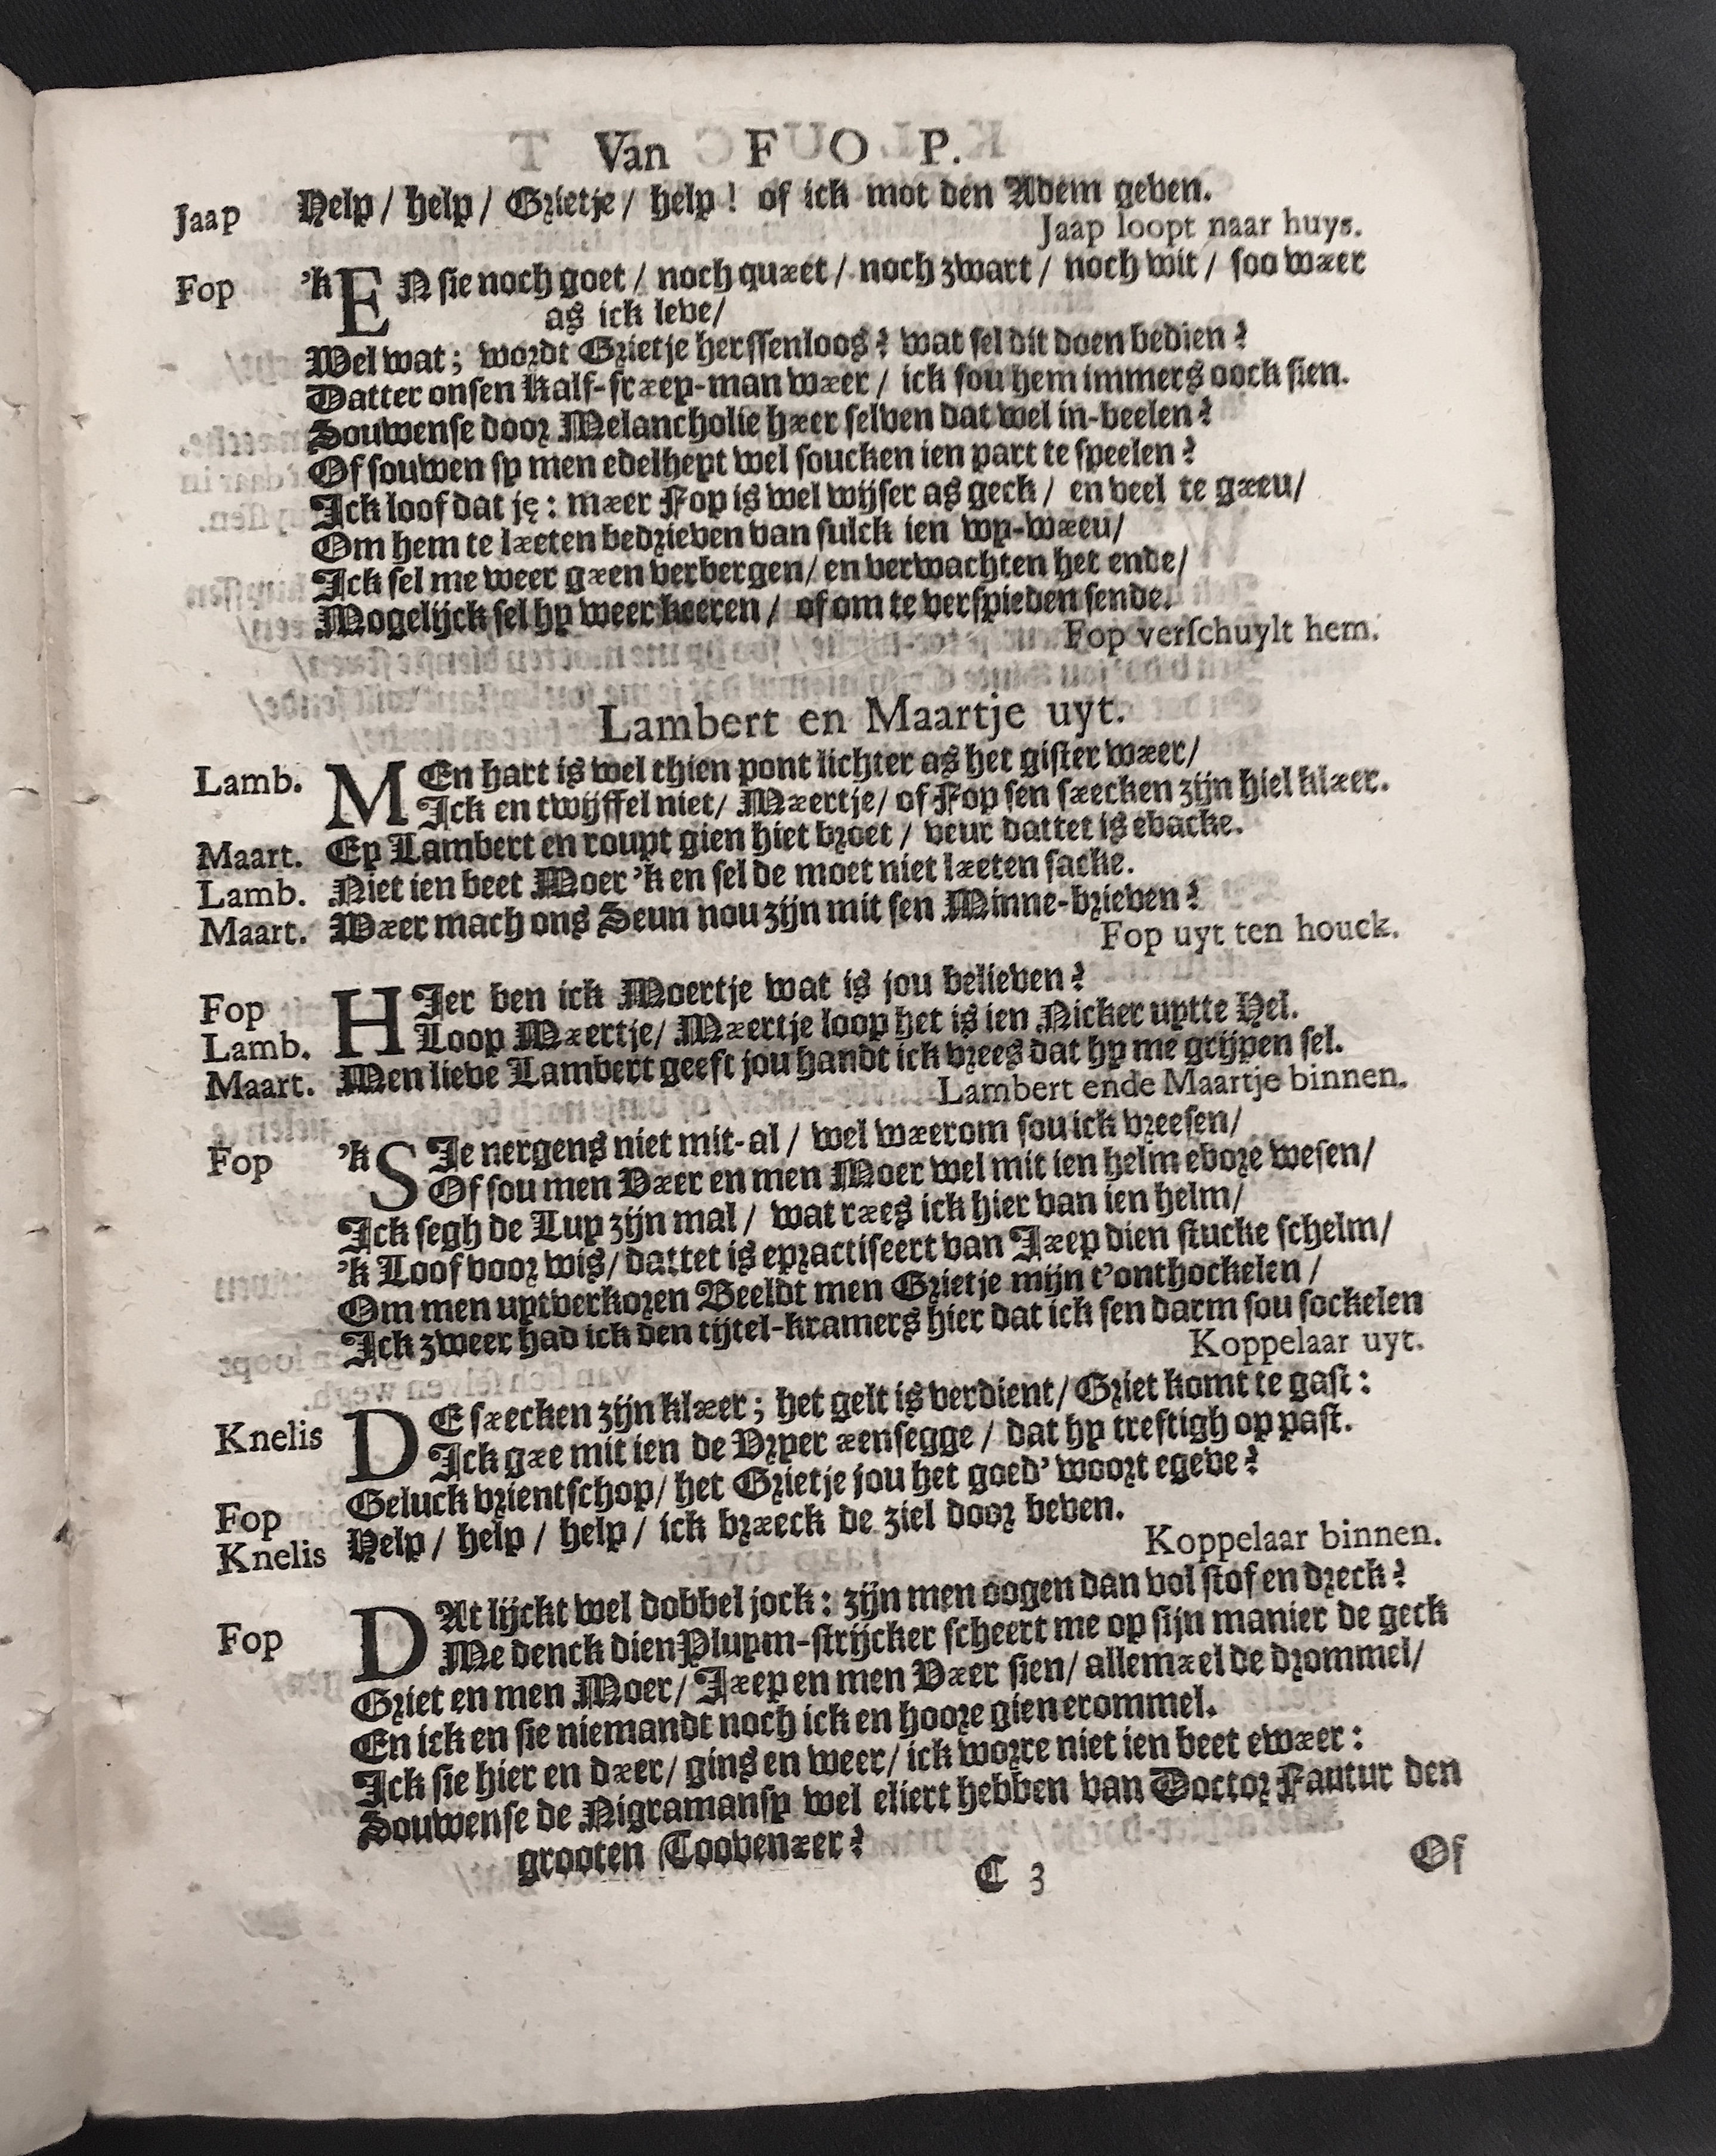 Van F O P.
Jaap Help / help / Grietje / help ! of ick mot den Adem geven.
Jaap loopt naar huys.
Fop 'k EN sie noch goet / noch quæt / noch zwart / noch wit / soo wær
as ick leve /
Wel wat ; wordt Grietje herssenloos ? wat sel dit doen bedien ?
Datter onsen Kalf-fræy-man wær / ick sou hem immers oock sien.
Souwense door Melancholie hær selven dat wel in-beelen ?
Of souwen sy men edelheyt wel soucken ien part te speelen ?
Ick loof dat je : mær Fop is wel wijser as geck / en veel te gæu /
Om hem te læten bedrieven van sulck ien wy-wæu /
Ick sel me weer gæn verbergen / en verwachten het ende /
Mogelijck sel hy weer keeren / of om te verspieden sende.
Fop verschuylt hem.
Lambert en Maartje uyt.
Lamb. MEn hart is wel thien pont lichter as het gister wær /
Ick en twijffel niet / Mærtje / of Fop sen sæcken zijn hiel klær.
Maart. Ey Lambert en roupt gien hiet broet / veur dattet is ebacke.
Lamb. Niet ien beet Moer 'k en sel de moet niet læten sacke.
Maart. Wær mach ons Seun nou zijn mit sen Minne-brieven ?
Fop uyt ten houck.
Fop HIer ben ick Moertje wat is jou believen ?
Lamb. Loop Mærtje / Mærtje loop het is ien Nicker uytte Hel.
Maart. Men lieve Lambert geeft jou handt ick vrees dat hy me grijpen sel.
Lambert ende Maartje binnen.
Fop 'k SIe nergens niet mit-al / wel wærom sou ick vreesen /
Of sou men Vær en men Moer wel mit ien helm ebore wesen /
Ick segh de Luy zijn mal / wat ræs ick hier van ien helm /
'k Loof voor wis / dattet is epractiseert van Jæp dien stucke schelm /
Om men uytverkoren Beeldt men Grietje mijn t'onthockelen /
Ick zweer had ick den tijtel-kramers hier dat ick sen darm sou sockelen
Koppelaar uyt.
Knelis DE sæcken zijn klær ; het gelt is verdient / Griet komt te gast :
Ick gæ mit ien de Vryer ænsegge / dat hy treftigh op past.
Fop Geluck vrientschop / het Grietje jou het goed' woort egeve ?
Knelis Help / help / help / ick bræck de ziel door beven.
Koppelaar binnen.
Fop DAt lijckt wel dobbel jock : zijn men oogen dan vol stof en dreck ?
Me denck dien Pluym-strijcker scheert me op sijn manier de geck
Griet en men Moer / Jæp en men Vær sien / allemæl de drommel /
En ick en sie niemandt noch ick en hoore gien erommel.
Ick sie hier en dær / gins en weer / ick worre niet ien beet ewær :
Souwense de Nigramansy wel eliert hebben van Doctor Fautur den
grooten Toovenær ?
C 3 Of